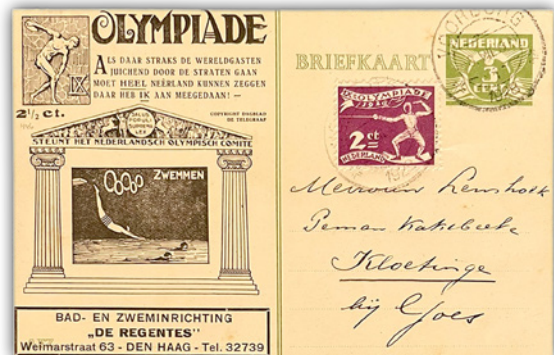 OLYMPIADE
IX
ALS DAAR STRAKS DE WERELDGASTEN
JUICHEND DOOR DE STRATEN GAAN
MOET HEEL NEÊRLAND KUNNEN ZEGGEN
DAAR HEB IK AAN MEEGEDAAN! —
2½ ct.
COPYRIGHT DAGBLAD
DE TELEGRAAF
SALUS
POPULI
SUPREMA
LEX
STEUNT HET NEDERLANDSCH OLYMPISCH COMITÉ
ZWEMMEN
BAD- EN ZWEMINRICHTING
„DE REGENTES"
Weimarstraat 63 - DEN HAAG - Tel. 32739
BRIEFKAART
NEDERLAND
3
CENT
OLYMPIADE
1928
2 ct
NEDERLAND
Mevrouw Lenshoek
Kloetinge
bij Goes